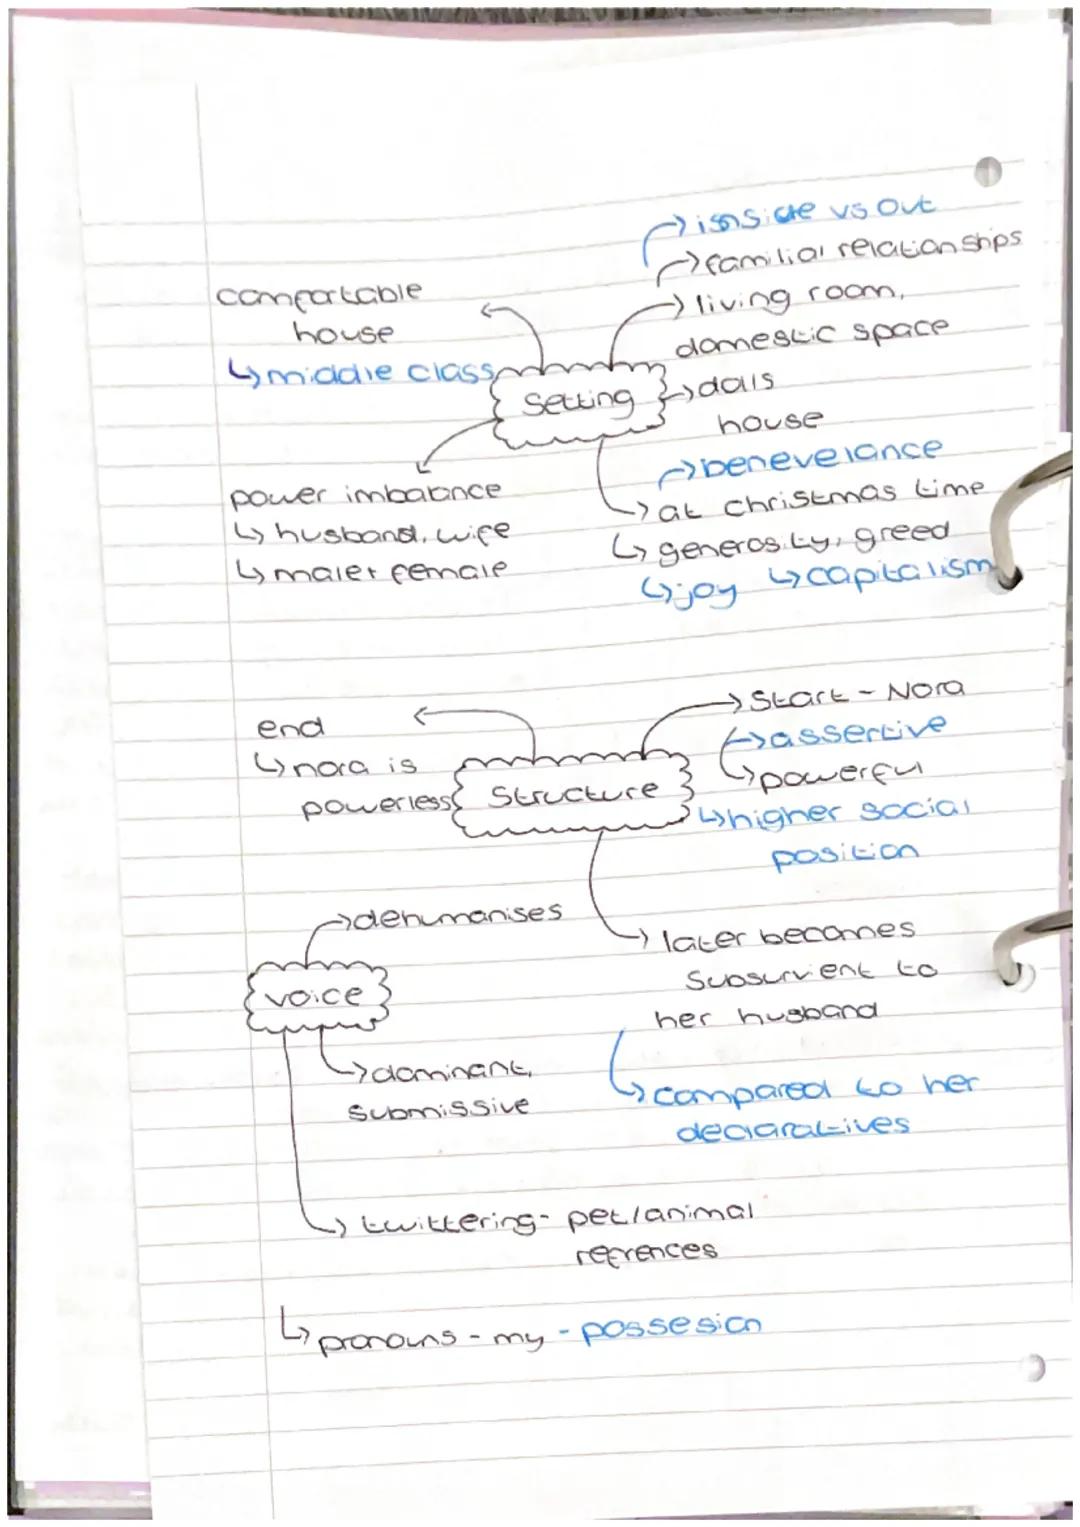 → isnside vs out
→ familial relationships
→ living room,
domestic space
comfortable
house
↳ middle class
Setting
→ dolls
house
power imbalance
↳ husband, wife
↳ male + female
→ benevelance
→ at christmas time
↳ generosity, greed
↳ joy ↳ capitalism
end
↳ nora is
powerless
Structure
→ Start - Nora
↳ assertive
↳ powerful
↳ higher social
position
→ later becomes
Subsurvient to
her husband
↳ compared to her
declaratives
voice
→ dehumanises
→ dominant,
submissive
→ twittering - pet/animal
refrences
↳ pronouns - my - possesion